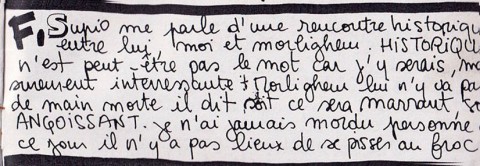 F. Supiò me parle d'une rencontre historiqu
entre lui, moi et morlighem. HiSTORiQU
n'est peut-être pas le mot car j'y serais, ma
surement interessante + Morlighem lui n'y va pa
de main morte il dit soit ce sera marrant, so
ANGOISSANT. je n'ai jamais mordu personne à
ce jour il n'y a pas lieux de se pisser au froc